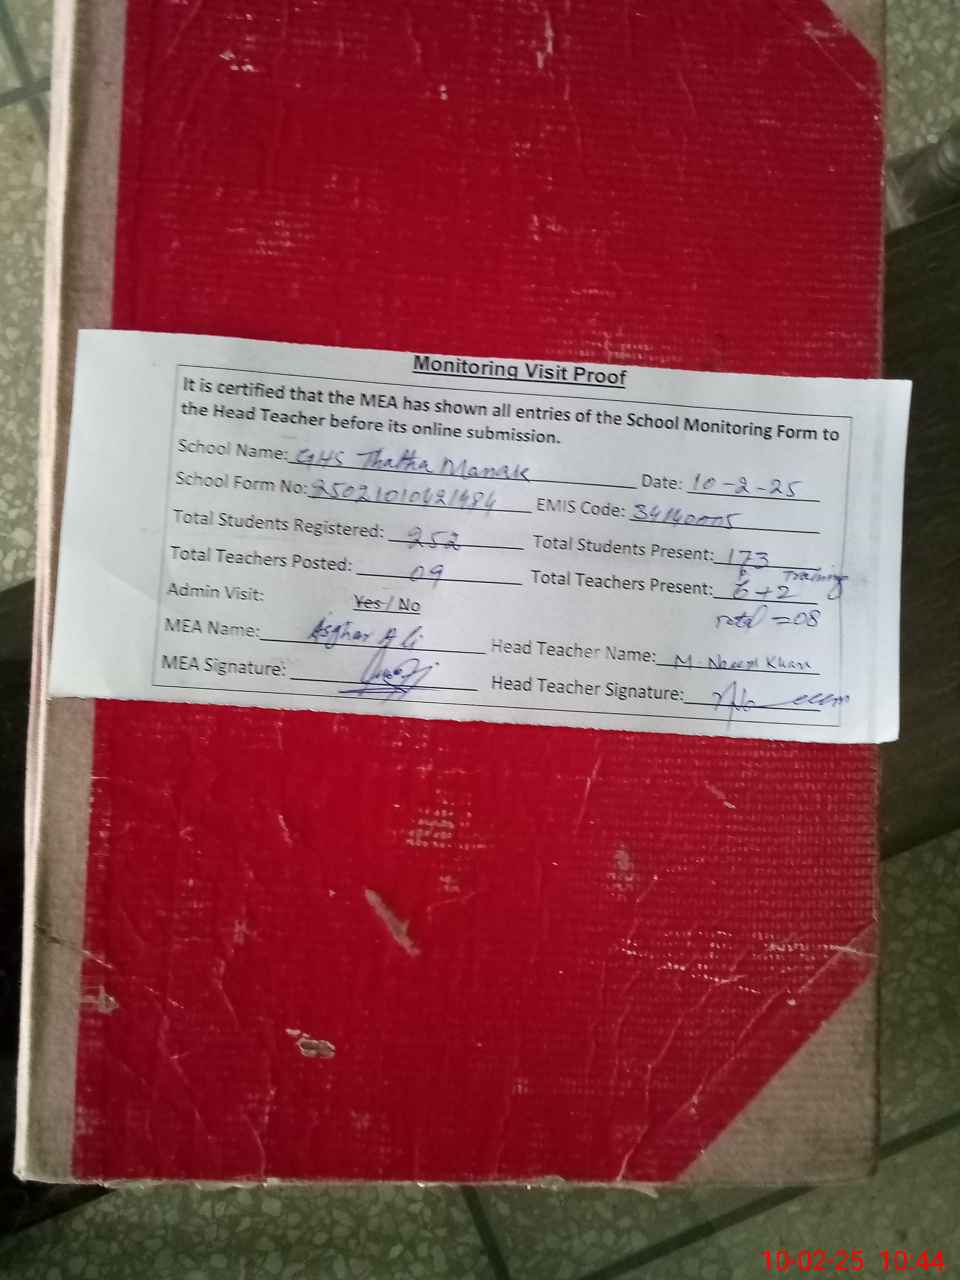 Monitoring Visit Proof
It is certified that the MEA has shown all entries of the School Monitoring Form to
the Head Teacher before its online submission.
School Name: GHS Thatha Manak Date: 10-2-25
School Form No: EMIS Code: 34140005
Total Students Registered: 252 Total Students Present: 173
Total Teachers Posted: 09 Total Teachers Present: 6+2 Training
Admin Visit: Yes / No Total = 08
MEA Name: Asghar Ali Head Teacher Name: M. Naeem Khan
MEA Signature: Head Teacher Signature:
10-02-25 10:44